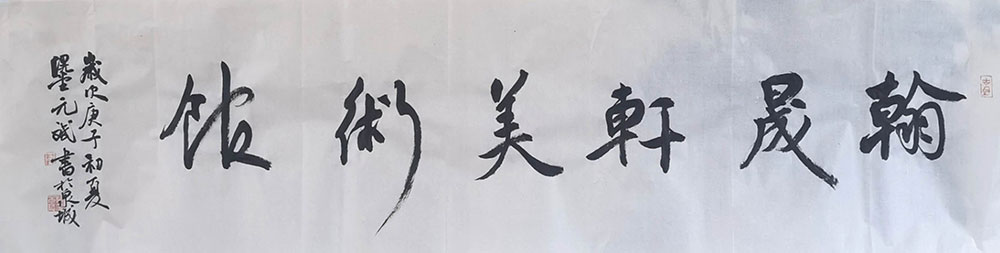 翰晟軒美術館
歲次庚子初夏
墨元斌書於泉城